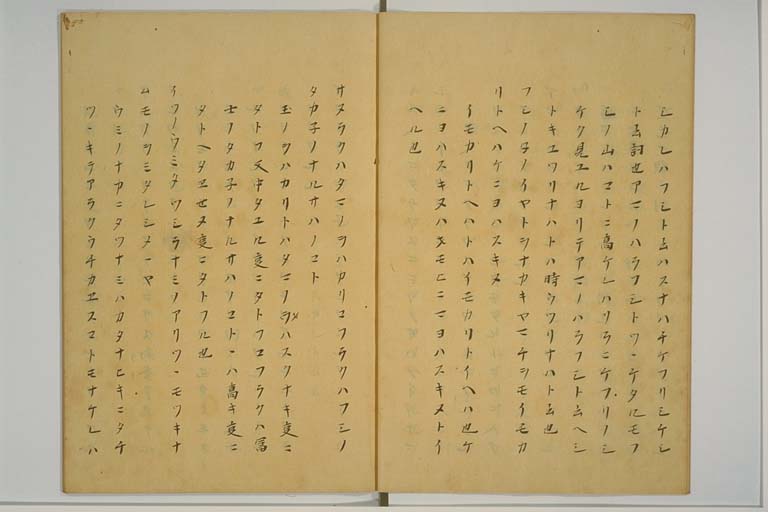 シカレハフシト云ハスナハチケフリミケシ
ト云詞也アマノハラフシトツヽケタルモフ
シノ山ハマコトニ高ケレハソラニケフリノシ
ケク見エルヨリテアマノハラフシト云ヘシ
トキユツリナハトハ時ウツリナハト云也
フシノ子ノイヤトシナカキヤマチヲシモイモカ
リトヘハケニヨハスキヌ
イモカリトヘハトハイモカリトイヘハ也ケ
ニヨハスキヌハ
ヘル也
サヌラクハタマノヲハカリコフラクハフシノ
タカ子ノナルサハノコト
玉ノヲハカリトハタマノヲハスクナキ変ニ
タトフ又中タエル変ニタトフコフラクハ冨
士ノタカ子ノナルサハノコトヽハ高キ変ニ
タトヘタエセヌ変ニタトフル也
イツノウミニタツシラナミノアリツヽモツキナ
ムモノヲミタレシメヽヤ
ウミノナカニタツナミハカタナヒキニタチ
ツヽキテアラクウチカエスコトモナケレハ